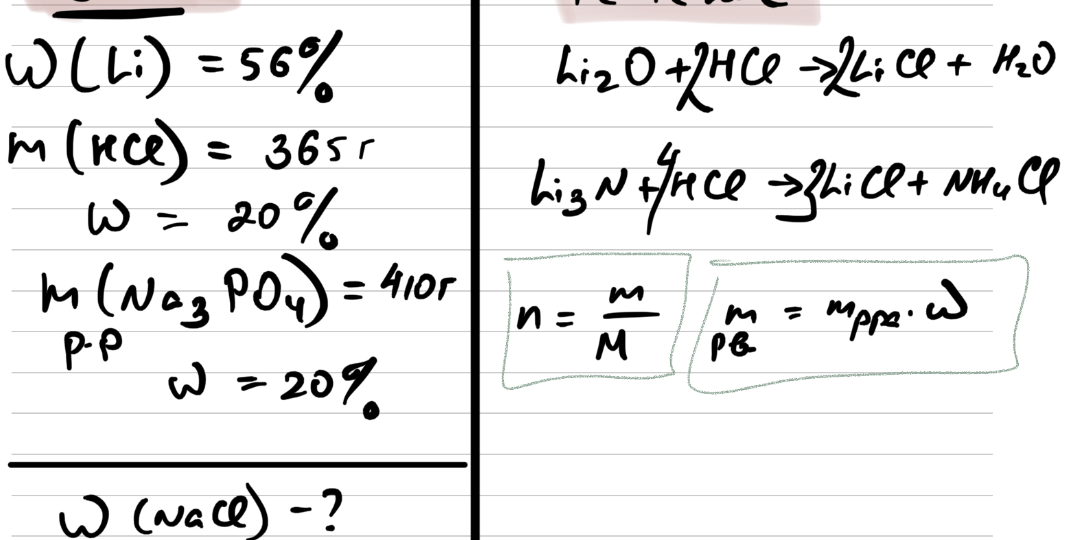 ω(Li) = 56%
m(HCl) = 365 г
ω = 20%
m(Na₃PO₄) = 410г
р-р
ω = 20%
ω (NaCl) - ?
Li₂O + 2HCl → 2LiCl + H₂O
Li₃N + 4HCl → 3LiCl + NH₄Cl
n = m/M
m рв = m рра · ω